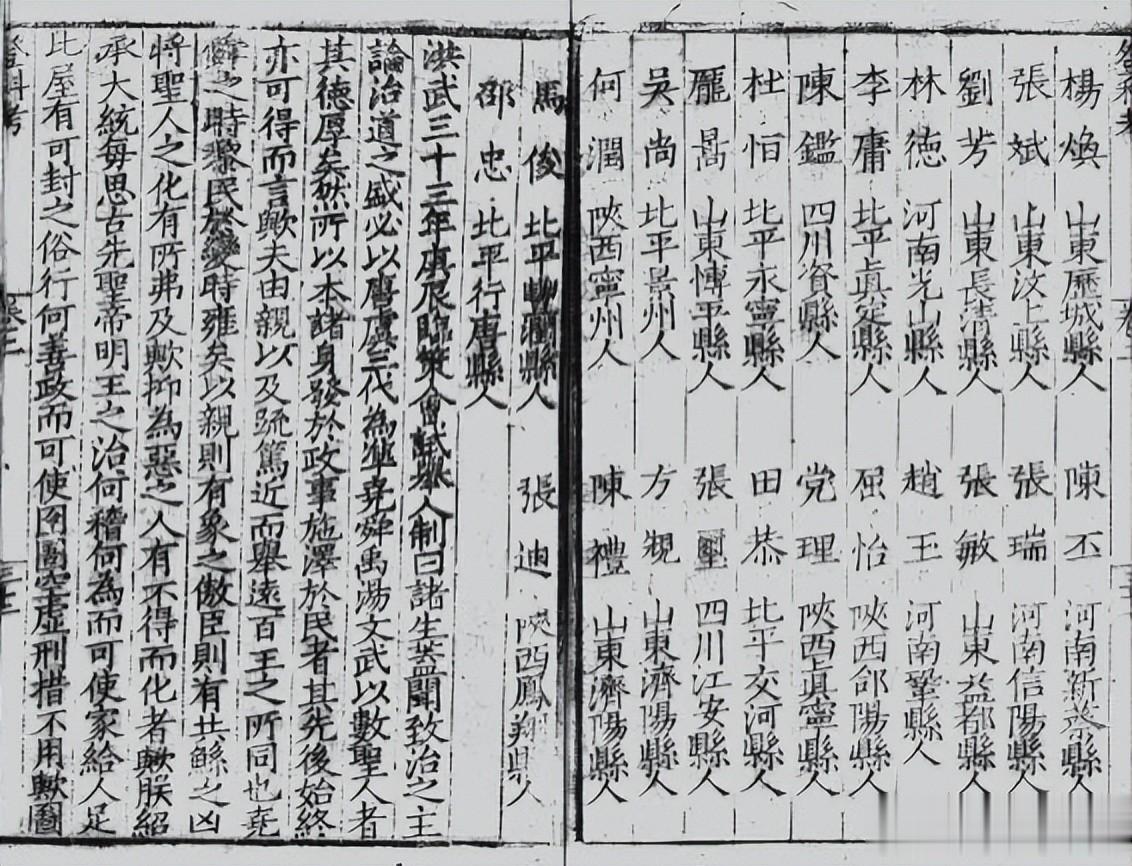 楊煥 山東歷城縣人 陳丕 河南新蔡縣人
張斌 山東汶上縣人 張瑞 河南信陽縣人
劉芳 山東長清縣人 張敏 山東益都縣人
林德 河南光山縣人 趙玉 河南鞏縣人
李庸 北平真定縣人 屈怡 陝西郃陽縣人
陳鑑 四川資縣人 党理 陝西真寧縣人
杜恒 北平永寧縣人 田恭 北平交河縣人
龎暠 山東博平縣人 張璽 四川江安縣人
吳尚 北平景州人 方覌 山東濟陽縣人
何潤 陝西寧州人 陳禮 山東濟陽縣人
馬俊 北平縣人 張迪 陝西鳳翔縣人
邵忠 北平行唐縣人
洪武三十三年庚辰臨策會試舉人制曰諸生葢聞致治之主
論治道之盛必以唐虞三代為準堯舜禹湯文武以數聖人者
其德厚矣然所以本諸身發於政事施澤於民者其先後始終
亦可得而言歟夫由親以及疏篤近而舉遠百王之所同也堯
舜之時黎民於變時雍矣以親則有象之傲臣則有共鯀之凶
將聖人之化有所弗及歟抑為惡之人有不得而化者歟朕紹
承大統每思古先聖帝明王之治何稽何為而可使家給人足
比屋有可封之俗行何善政而可使囹圄空虛刑措不用歟圖
登科考
卷二